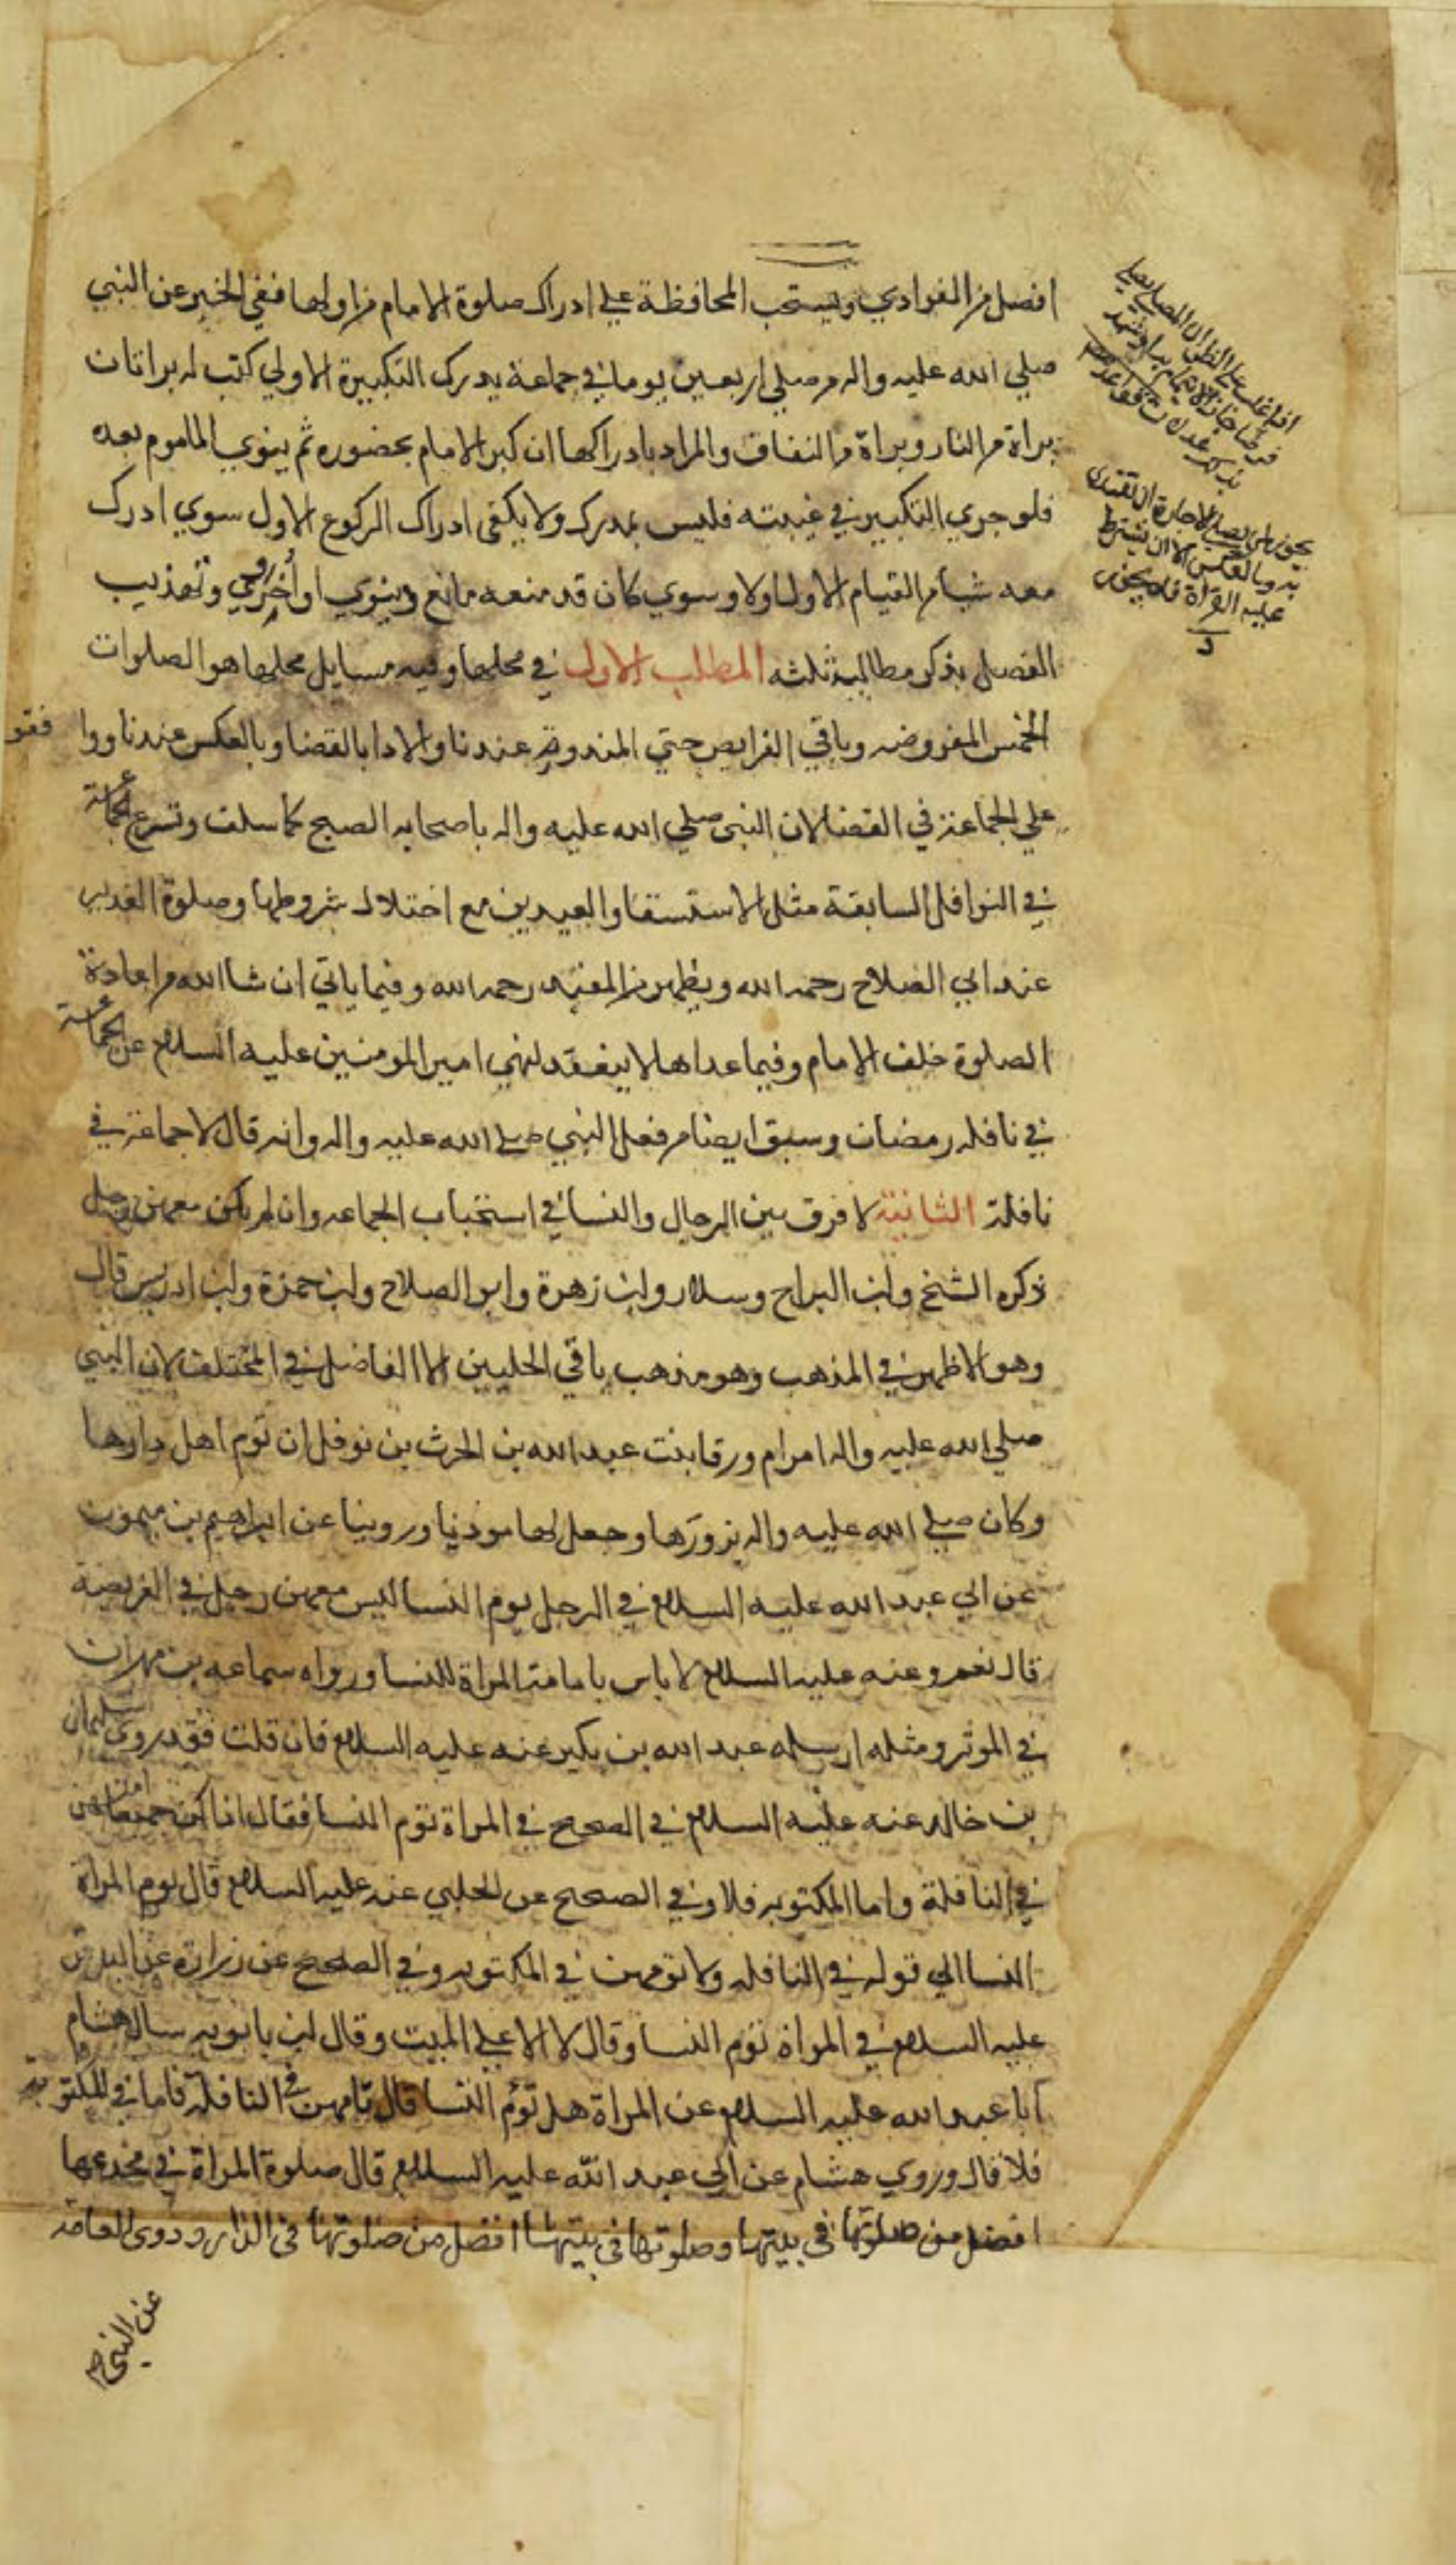 افضل من الفوادي ويستحب المحافظة علي ادراك صلوة الامام من اولها ففي الخبر عن النبي
صلي الله عليه واله من صلي اربعين يوما في جماعة يدرك التكبيرة الاولي كتب له براتان
براة من النار وبراة من النفاق والمراد بادراكها ان كبر الامام بحضوره ثم ينوي الماموم بعده
فلو جري التكبير في غيبته فليس بمدرك ولا يكفي ادراك الركوع الاول سوي ادرك
معه شيا من القيام الاول اولا وسوي كان قد منعه مانع دنيوي او اخروي وتهذيب
الفصل بذكر مطالبة ثلثه المطلب الاول في محلها وفيه مسايل محلها هو الصلوات
الخمس المفروضه وباقي الفرايض حتي المنذورة عندنا والادا بالقضا وبالعكس عندنا ووا فقو
علي الجماعة في القضا لان النبي صلي الله عليه واله باصحابه الصبح كما سلف وتسرع الجماعة
في النوافل السابقة مثل الاستسقا والعيدين مع اختلال شروطها وصلوة الغدير
عند ابي الصلاح رحمه الله ويظهر من المفيد رحمه الله وفيما ياتي ان شا الله من اعادة
الصلوة خلف الامام وفيما عداها لا ينعقد لنهي امير المومنين عليه السلام عن الجماعة
في نافله رمضان وسبق ايضا من فعل النبي صلي الله عليه واله وانه قال لا جماعة في
نافلة الثانية لا فرق بين الرجال والنسا في استحباب الجماعه وان لم يكن معهن رجل
ذكره الشيخ وابن البراج وسلار وابن زهرة وابو الصلاح وابن حمزة وابن ادريس قال
وهو الاظهر في المذهب وهو مذهب باقي الحليين الا الفاضل في المختلف لان النبي
صلي الله عليه واله امر ام ورقا بنت عبد الله بن الحرث بن نوفل ان توم اهل دارها
وكان صلي الله عليه واله يزورها وجعل لها موذنا وروينا عن ابراهيم بن ميمون
عن ابي عبد الله عليه السلام في الرجل يوم النسا ليس معهن رجل في الفريضة
قال نعم وعنه عليه السلام لا باس بامامة المراة للنسا ورواه سماعه بن مهران
في الموثر ومثله ارسله عبد الله بن بكير عنه عليه السلام فان قلت فقد روي سليمان
بن خالد عنه عليه السلام في الصحيح في المراة توم النسا فقال اذا كن جميعا امتهن
في النافلة واما المكتوبه فلا وفي الصحيح عن الحلبي عنه عليه السلام قال يوم المراة
النسا الي قوله في النافله ولا تومهن في المكتوبه وفي الصحيح عن زرارة عن الباقر
عليه السلام في المراة توم النسا وقال لا الا علي الميت وقال ابن بابويه سال هشام
ابا عبد الله عليه السلام عن المراة هل توم النسا قال تامهن في النافلة فاما في المكتوبة
فلا قال وروي هشام عن ابي عبد الله عليه السلام قال صلوة المراة في مخدعها
افضل من صلوتها في بيتها وصلوتها في بيتها افضل من صلوتها في الدار وروي العامة
عن النبي ص
اذا غلب علي الظن ان المصلي يصلي
فرضا جاز الائتمام به
يجوز لمن يصلي الاجارة ان يقتدي
به وبالعكس الا ان يشترط
عليه القراة فلا يجوز